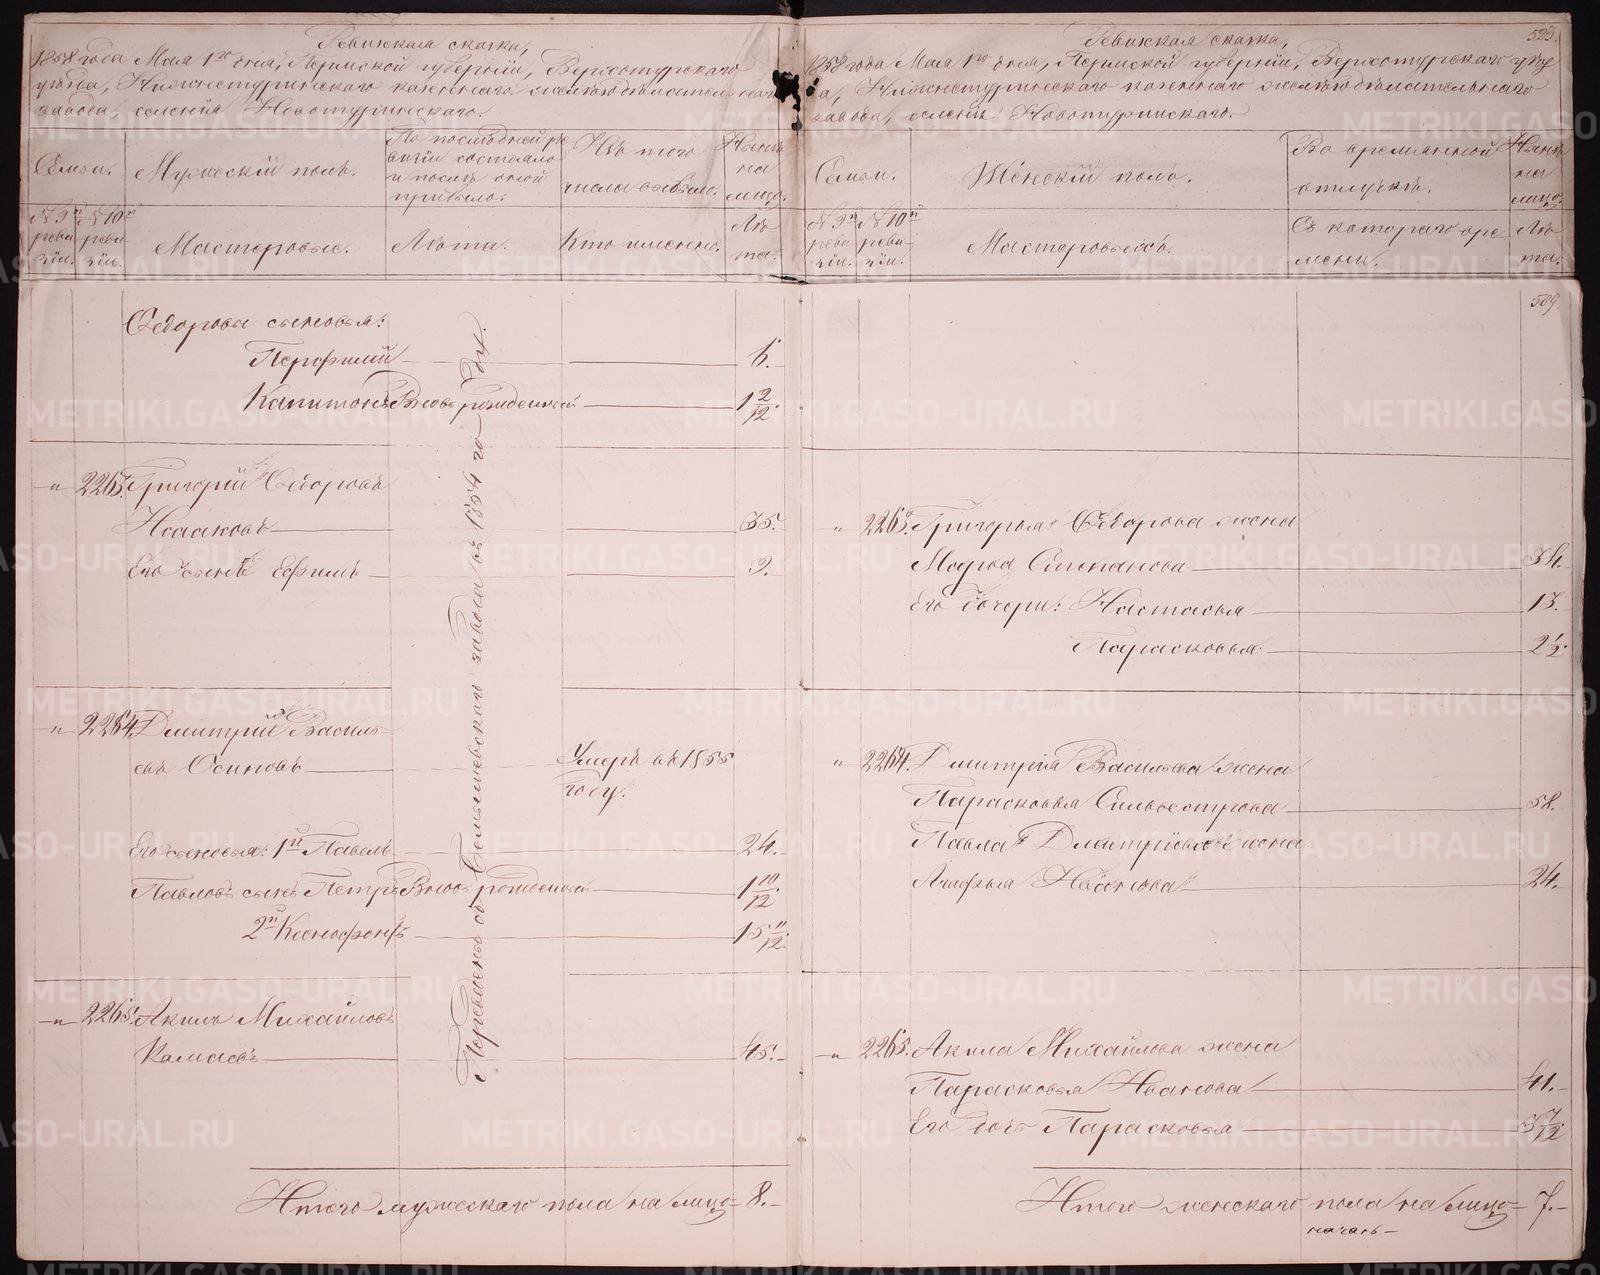 Ревижская сказка,
1858 года Мая 1го дня, Пермской губернiи, Верхотурскаго
уѣзда, Нижнетуринскаго казеннаго желѣзодѣлательнаго
завода, селенiя Новотуринскаго.
Семьи.
Мужескiй полъ.
По послѣдней ре
визiи состояло
и послѣ оной
прибыло
Изъ того
числа выбыло.
Нынѣ
на
лицо.
№ 9й
реви
зiи.
№ 10й
реви
зiи.
Мастеровые.
Лѣта.
Кто именно.
Лѣ
та.
Ѳедоровы сыновья:
Перфилiй 6.
Капитонъ Вновь рожденный 1 2/12.
" 2263. Григорiй Ѳедоровъ
Исаковъ 35.
Его сынъ Ефимъ 9.
" 2264. Дмитрiй Василь
евъ Осиновъ Умеръ въ 1855
году.
Его сыновья: 1й Павелъ 24.
Павловъ сынъ Петръ Вновь рожденный 1 10/12
2й Ксенофонтъ 15 11/12.
" 2265. Акила Михайловъ
45.
завода въ 1854 году.
Итого мужескаго пола на лицо 8.
525.
Ревижская сказка,
1858 года Мая 1го дня, Пермской губернiи, Верхотурскаго уѣзд
а, Нижнетуринскаго казеннаго желѣзодѣлательнаго
завода, селенiя Новотуринскаго.
Семьи.
Женскiй полъ.
Во временной
отлучкѣ.
Нынѣ
на
лицо.
№ 9й
реви
зiи.
№ 10й
реви-
зiи.
Мастеровыхъ.
Съ котораго вре-
мени.
Лѣ
та.
509.
" 2263. Григорья Ѳедорова жена
Марфа Степанова 34.
Его дочери: Настасья 13.
Парасковья 2 1/2.
" 2264. Дмитрiя Васильева жена
Парасковья Сильвестрова 58.
Павла Дмитрiева жена
Агафья 24.
" 2265. Акила Михайлова жена
Парасковья Иванова 41.
Его дочь Парасковья 3 7/12
Итого женскаго пола на лицо 7.